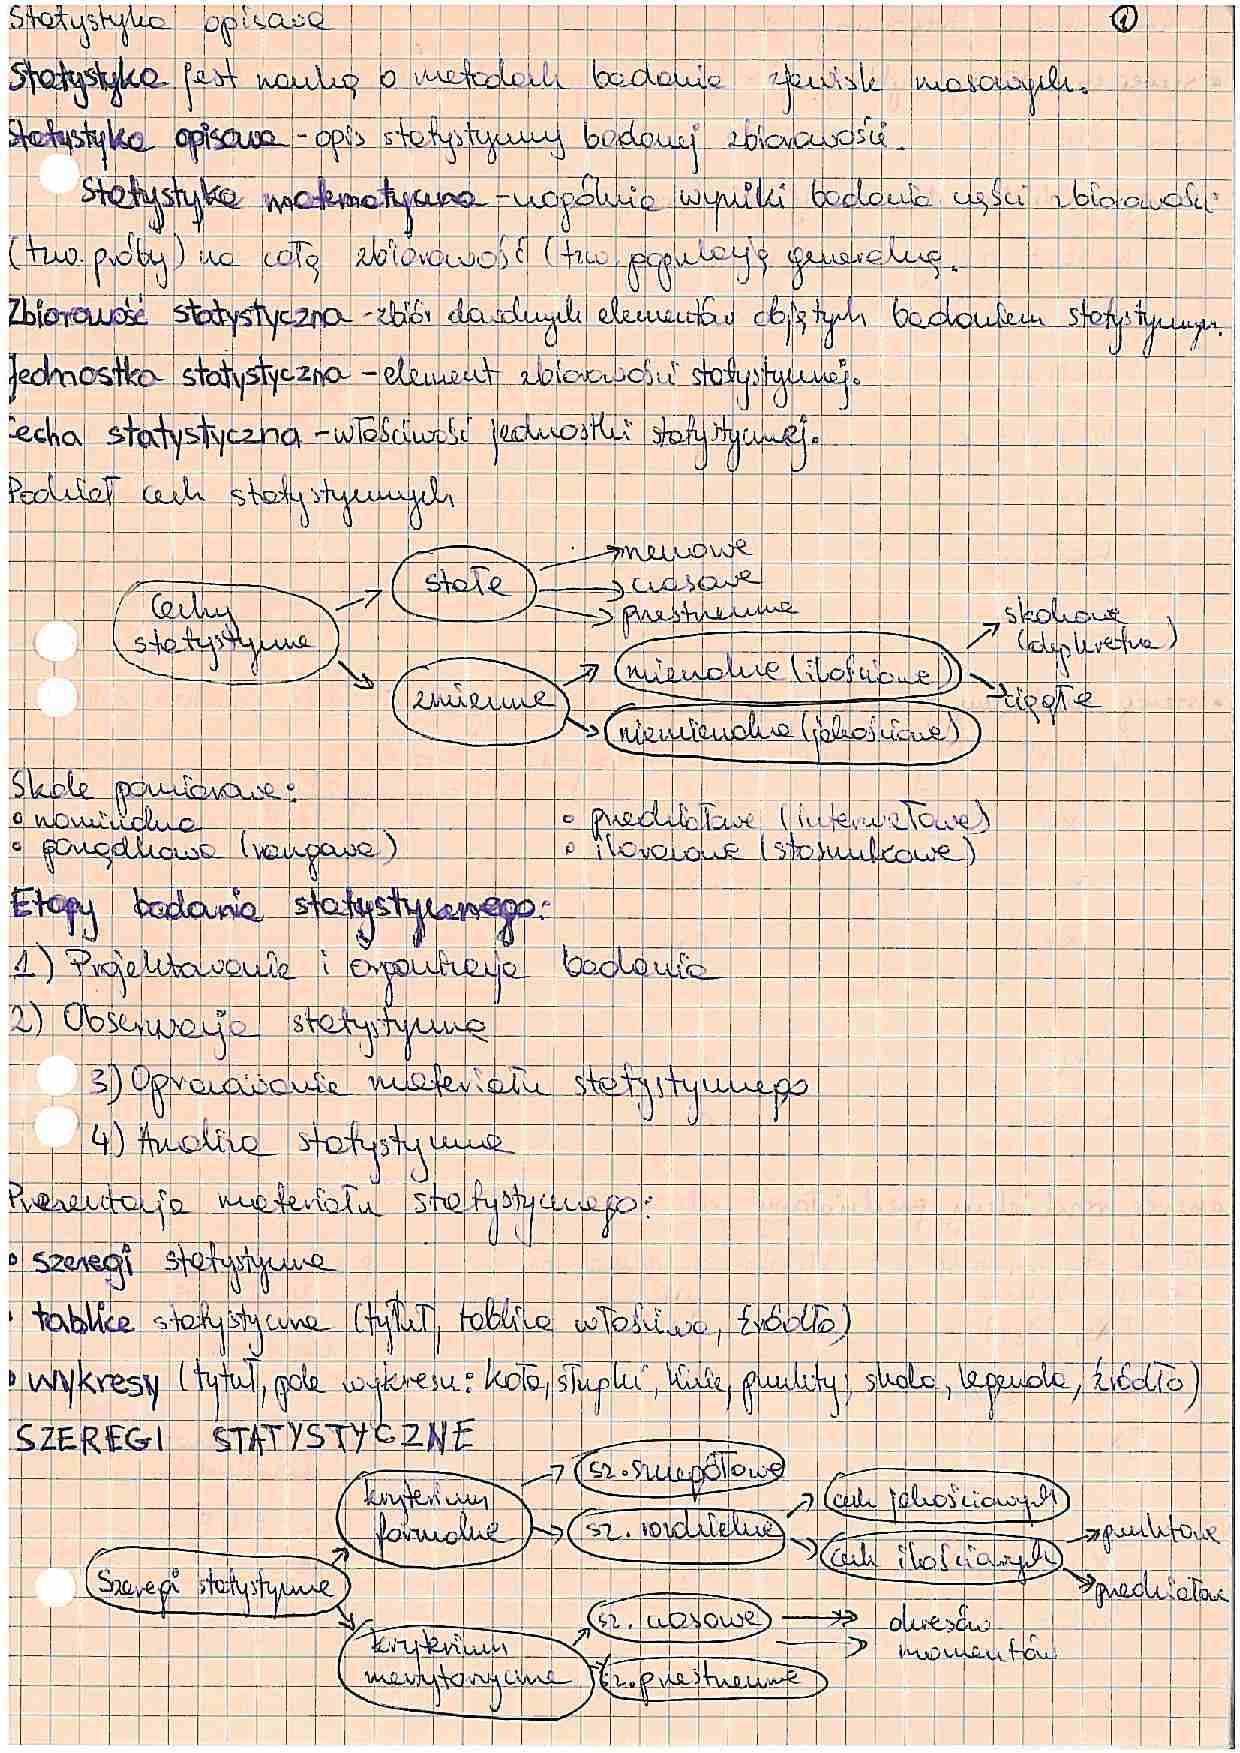 Statystyka opisowa
1
Statystyka jest nauką o metodach badania zjawisk masowych.
Statystyka opisowa - opis statystyczny badanej zbiorowości.
Statystyka matematyczna - uogólnia wyniki badania części zbiorowości
(tzw. próby) na całą zbiorowość (tzw. populację generalną.
Zbiorowość statystyczna - zbiór dowolnych elementów objętych badaniem statystycznym.
Jednostka statystyczna - element zbiorowości statystycznej.
Cecha statystyczna - właściwość jednostki statystycznej.
Podział cech statystycznych
Cechy statystyczne
stałe
rzeczowe
czasowe
przestrzenne
zmienne
mierzalne (ilościowe)
skokowe (dyskretne)
ciągłe
niemierzalne (jakościowe)
Skale pomiarowe:
• nominalna
• przedziałowe (interwałowe)
• porządkowa (rangowa)
• ilorazowe (stosunkowe)
Etapy badania statystycznego:
1) Projektowanie i organizacja badania
2) Obserwacja statystyczna
3) Opracowanie materiału statystycznego
4) Analiza statystyczna
Prezentacja materiału statystycznego:
• szeregi statystyczne
• tablice statystyczne (tytuł, tablica właściwa, źródło)
• wykresy (tytuł, pole wykresu: koła, słupki, linie, punkty; skala, legenda, źródło)
SZEREGI STATYSTYCZNE
Szeregi statystyczne
kryterium formalne
sz. szczegółowe
sz. rozdzielne
cech jakościowych
cech ilościowych
punktowe
przedziałowe
kryterium merytoryczne
sz. czasowe
okresów
momentów
sz. przestrzenne